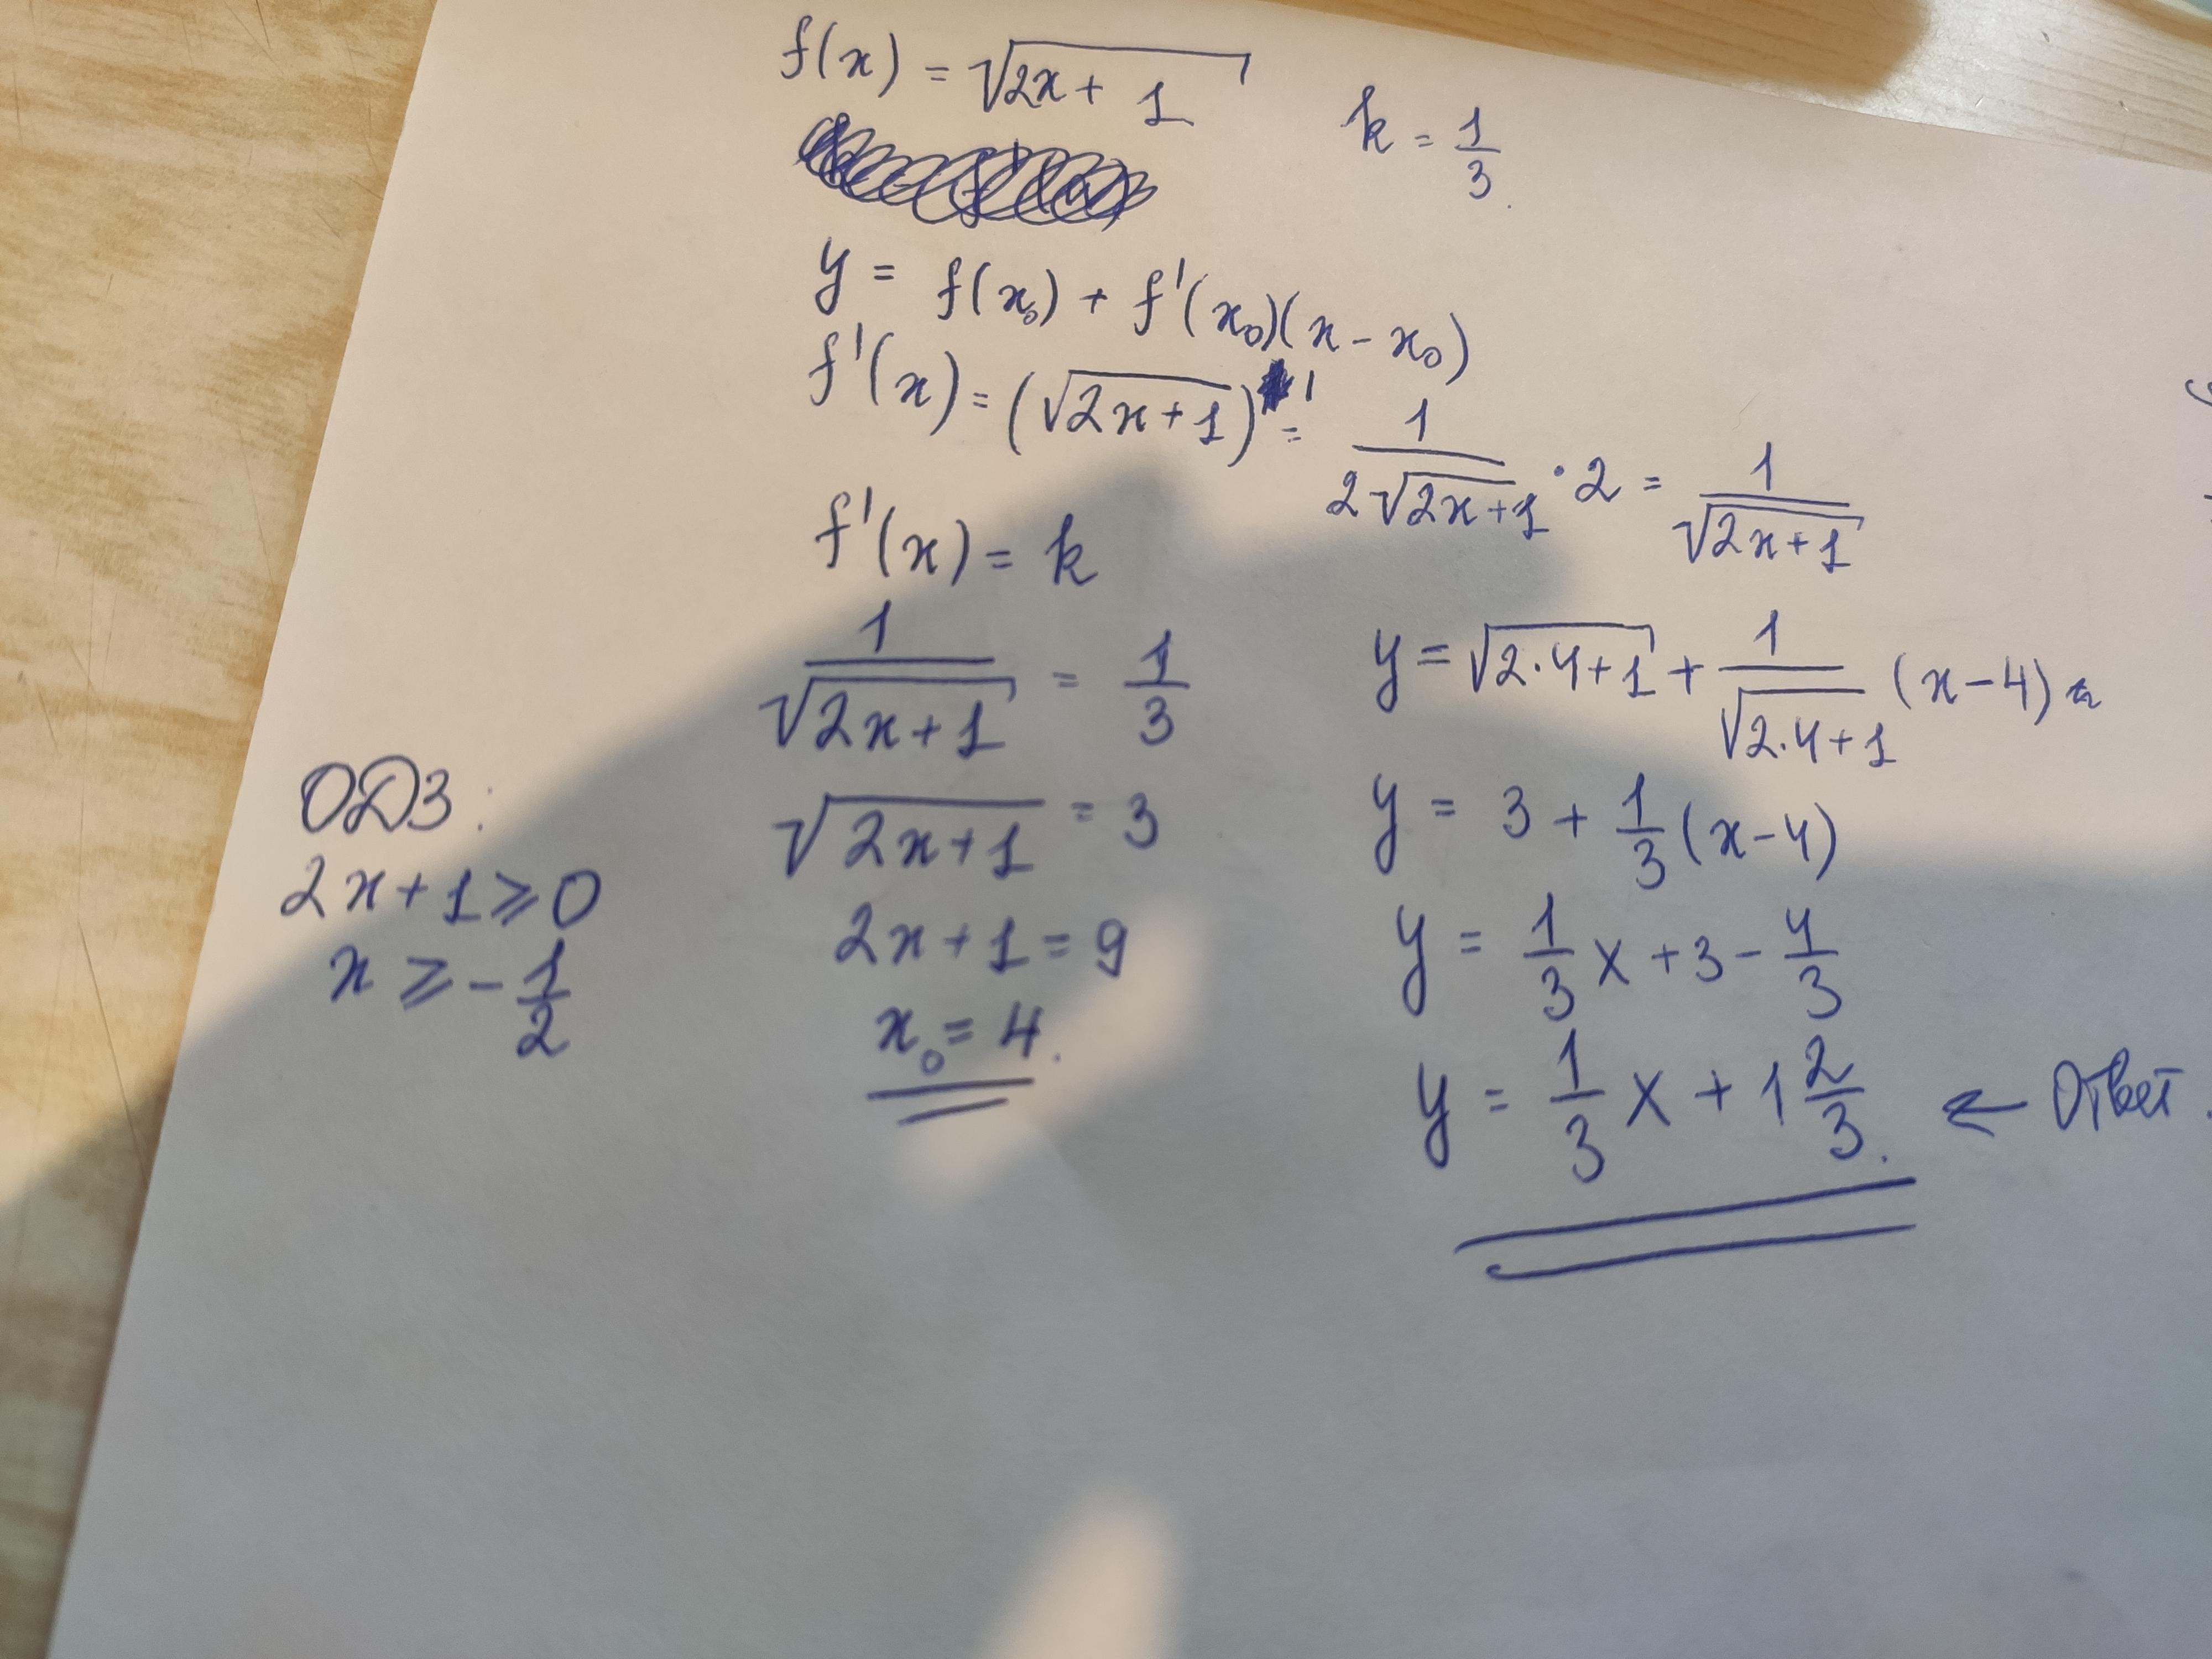 f(x) = √(2x + 1)
k = 1/3
y = f(x₀) + f'(x₀)(x - x₀)
f'(x) = (√(2x+1))' = 1/(2√(2x+1)) · 2 = 1/√(2x+1)
f'(x) = k
1/√(2x+1) = 1/3
√(2x+1) = 3
2x+1 = 9
x₀ = 4.
ОДЗ:
2x+1 ⩾ 0
x ⩾ - 1/2
y = √(2·4+1) + 1/√(2·4+1) (x-4)
y = 3 + 1/3 (x-4)
y = 1/3 x + 3 - 4/3
y = 1/3 x + 1 2/3. ← Ответ.